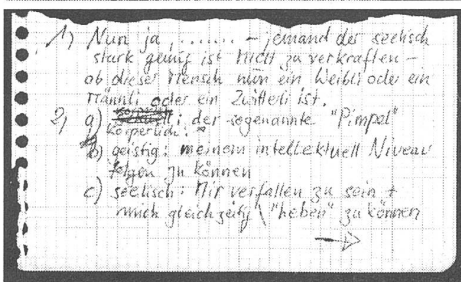 1) Nun ja, ........ – jemand der seelisch
stark genug ist mich zu verkraften –
ob dieser Mensch nun ein Weibli oder ein
Männli oder ein Zwitterli ist.
2) a) der sogenannte "Pimpel"
körperlich:
b) geistig: meinem intellektuell Niveau
folgen zu können
c) seelisch: Mir verfallen zu sein +
mich gleichzeitig "heben" zu können